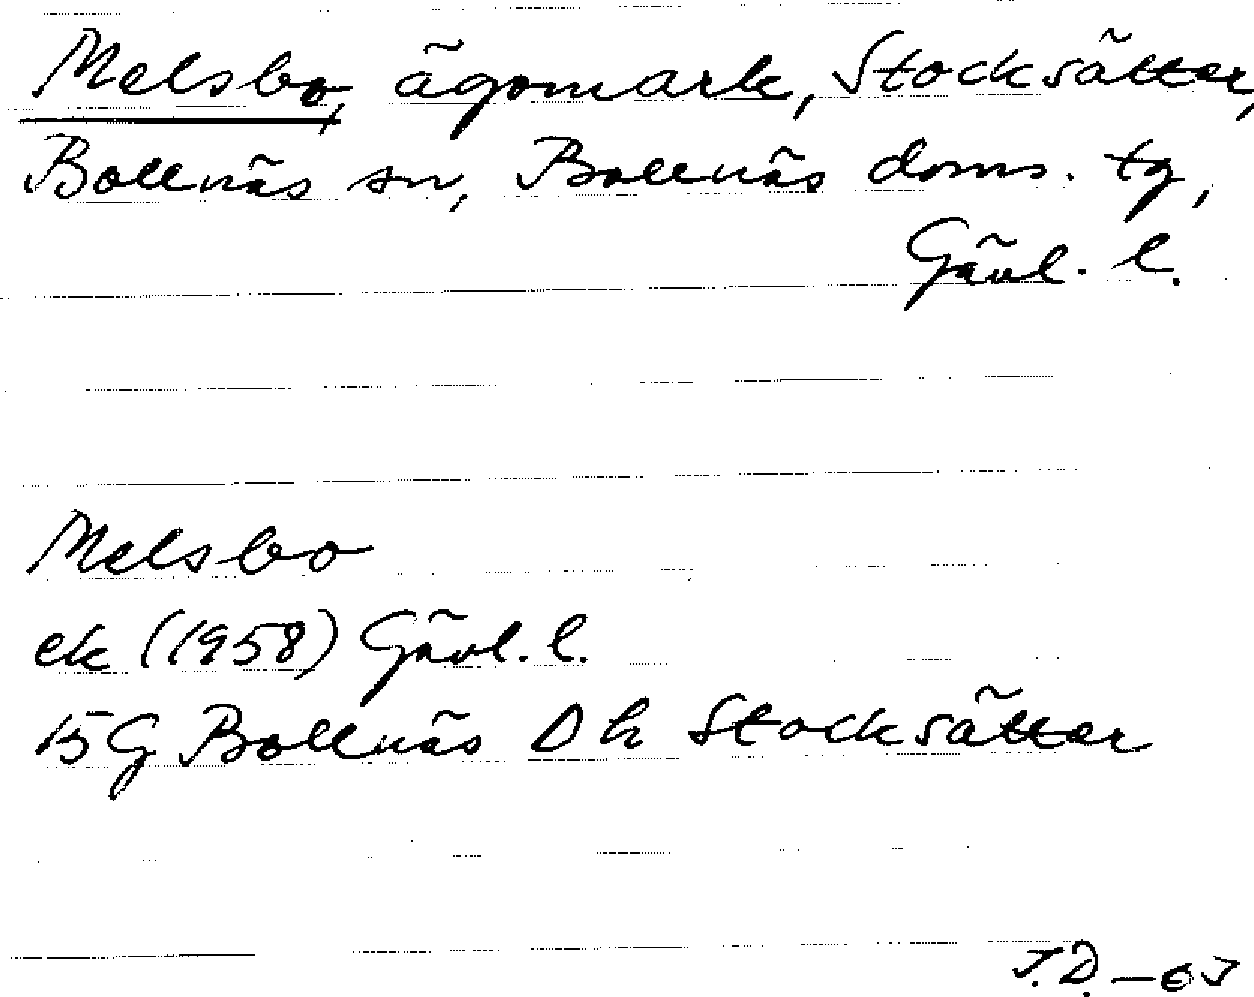 Melsbo, ägomark, Stocksätter,
Bollnäs sn, Bollnäs doms. tg,
Gävl. l.
Melsbo
ek (1958) Gävl. l.
15G Bollnäs Dh Stocksätter
J.D. –